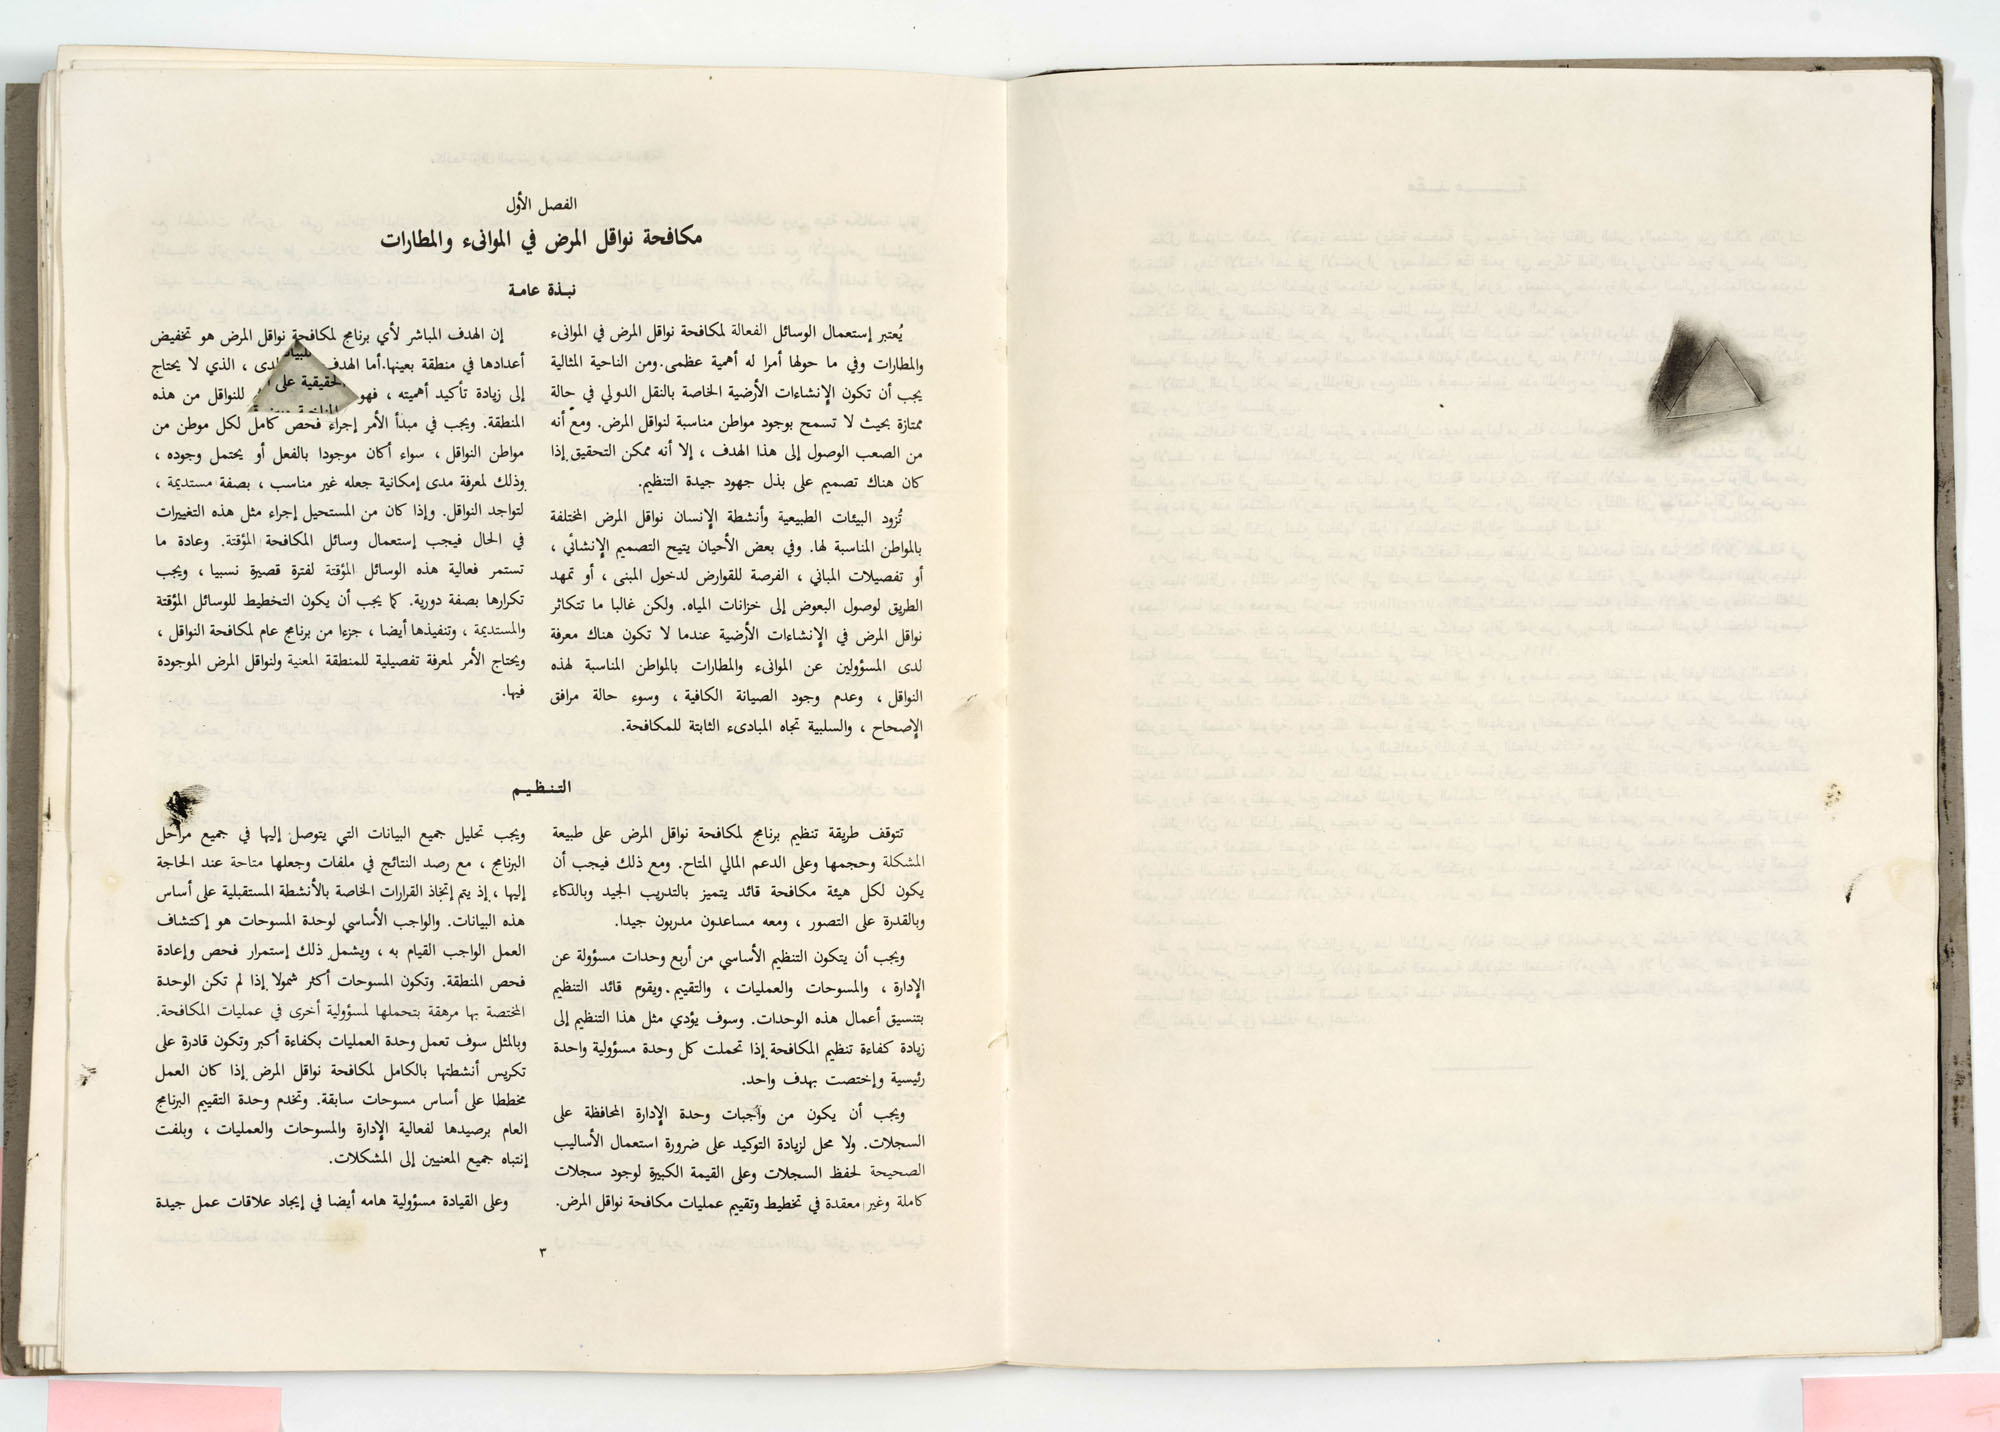 الفصل الأول
مكافحة نواقل المرض في الموانىء والمطارات
نبذة عامة
يُعتبر إستعمال الوسائل الفعالة لمكافحة نواقل المرض في الموانىء
والمطارات وفي ما حولها أمرا له أهمية عظمى. ومن الناحية المثالية
يجب أن تكون الإنشاءات الأرضية الخاصة بالنقل الدولي في حالة
ممتازة بحيث لا تسمح بوجود مواطن مناسبة لنواقل المرض. ومع أنه
من الصعب الوصول إلى هذا الهدف ، إلا أنه ممكن التحقيق إذا
كان هناك تصميم على بذل جهود جيدة التنظيم.
تُزود البيئات الطبيعية وأنشطة الإنسان نواقل المرض المختلفة
بالمواطن المناسبة لها. وفي بعض الأحيان يتيح التصميم الإنشائي ،
أو تفصيلات المباني ، الفرصة للقوارض لدخول المبنى ، أو تمهد
الطريق لوصول البعوض إلى خزانات المياه. ولكن غالبا ما تتكاثر
نواقل المرض في الإنشاءات الأرضية عندما لا تكون هناك معرفة
لدى المسؤولين عن الموانىء والمطارات بالمواطن المناسبة لهذه
النواقل ، وعدم وجود الصيانة الكافية ، وسوء حالة مرافق
الإصحاح ، والسلبية تجاه المبادىء الثابتة للمكافحة.
إن الهدف المباشر لأي برنامج لمكافحة نواقل المرض هو تخفيض
أعدادها في منطقة بعينها. أما الهدف لدى ، الذي لا يحتاج
إلى زيادة تأكيد أهميته ، فهو الحقيقية على للنواقل من هذه
المنطقة. ويجب في مبدأ الأمر إجراء فحص كامل لكل موطن من
مواطن النواقل ، سواء أكان موجودا بالفعل أو يحتمل وجوده ،
وذلك لمعرفة مدى إمكانية جعله غير مناسب ، بصفة مستديمة ،
لتواجد النواقل. وإذا كان من المستحيل إجراء مثل هذه التغييرات
في الحال فيجب إستعمال وسائل المكافحة المؤقتة. وعادة ما
تستمر فعالية هذه الوسائل المؤقتة لفترة قصيرة نسبيا ، ويجب
تكرارها بصفة دورية. كما يجب أن يكون التخطيط للوسائل المؤقتة
والمستديمة ، وتنفيذها أيضا ، جزءا من برنامج عام لمكافحة النواقل ،
ويحتاج الأمر لمعرفة تفصيلية للمنطقة المعنية ولنواقل المرض الموجودة
فيها.
التنظيم
تتوقف طريقة تنظيم برنامج لمكافحة نواقل المرض على طبيعة
المشكلة وحجمها وعلى الدعم المالي المتاح. ومع ذلك فيجب أن
يكون لكل هيئة مكافحة قائد يتميز بالتدريب الجيد وبالذكاء
وبالقدرة على التصور ، ومعه مساعدون مدربون جيدا.
ويجب أن يتكون التنظيم الأساسي من أربع وحدات مسؤولة عن
الإدارة ، والمسوحات والعمليات ، والتقييم. ويقوم قائد التنظيم
بتنسيق أعمال هذه الوحدات. وسوف يؤدي مثل هذا التنظيم إلى
زيادة كفاءة تنظيم المكافحة إذا تحملت كل وحدة مسؤولية واحدة
رئيسية وإختصت بهدف واحد.
ويجب أن يكون من واجبات وحدة الإدارة المحافظة على
السجلات. ولا محل لزيادة التوكيد على ضرورة استعمال الأساليب
الصحيحة لحفظ السجلات وعلى القيمة الكبيرة لوجود سجلات
كاملة وغير معقدة في تخطيط وتقييم عمليات مكافحة نواقل المرض.
ويجب تحليل جميع البيانات التي يتوصل إليها في جميع مراحل
البرنامج ، مع رصد النتائج في ملفات وجعلها متاحة عند الحاجة
إليها ، إذ يتم إتخاذ القرارات الخاصة بالأنشطة المستقبلية على أساس
هذه البيانات. والواجب الأساسي لوحدة المسوحات هو إكتشاف
العمل الواجب القيام به ، ويشمل ذلك إستمرار فحص وإعادة
فحص المنطقة. وتكون المسوحات أكثر شمولا إذا لم تكن الوحدة
المختصة بها مرهقة بتحملها لمسؤولية أخرى في عمليات المكافحة.
وبالمثل سوف تعمل وحدة العمليات بكفاءة أكبر وتكون قادرة على
تكريس أنشطتها بالكامل لمكافحة نواقل المرض إذا كان العمل
مخططا على أساس مسوحات سابقة. وتخدم وحدة التقييم البرنامج
العام برصيدها لفعالية الإدارة والمسوحات والعمليات ، وبلفت
إنتباه جميع المعنيين إلى المشكلات.
وعلى القيادة مسؤولية هامه أيضا في إيجاد علاقات عمل جيدة
٣